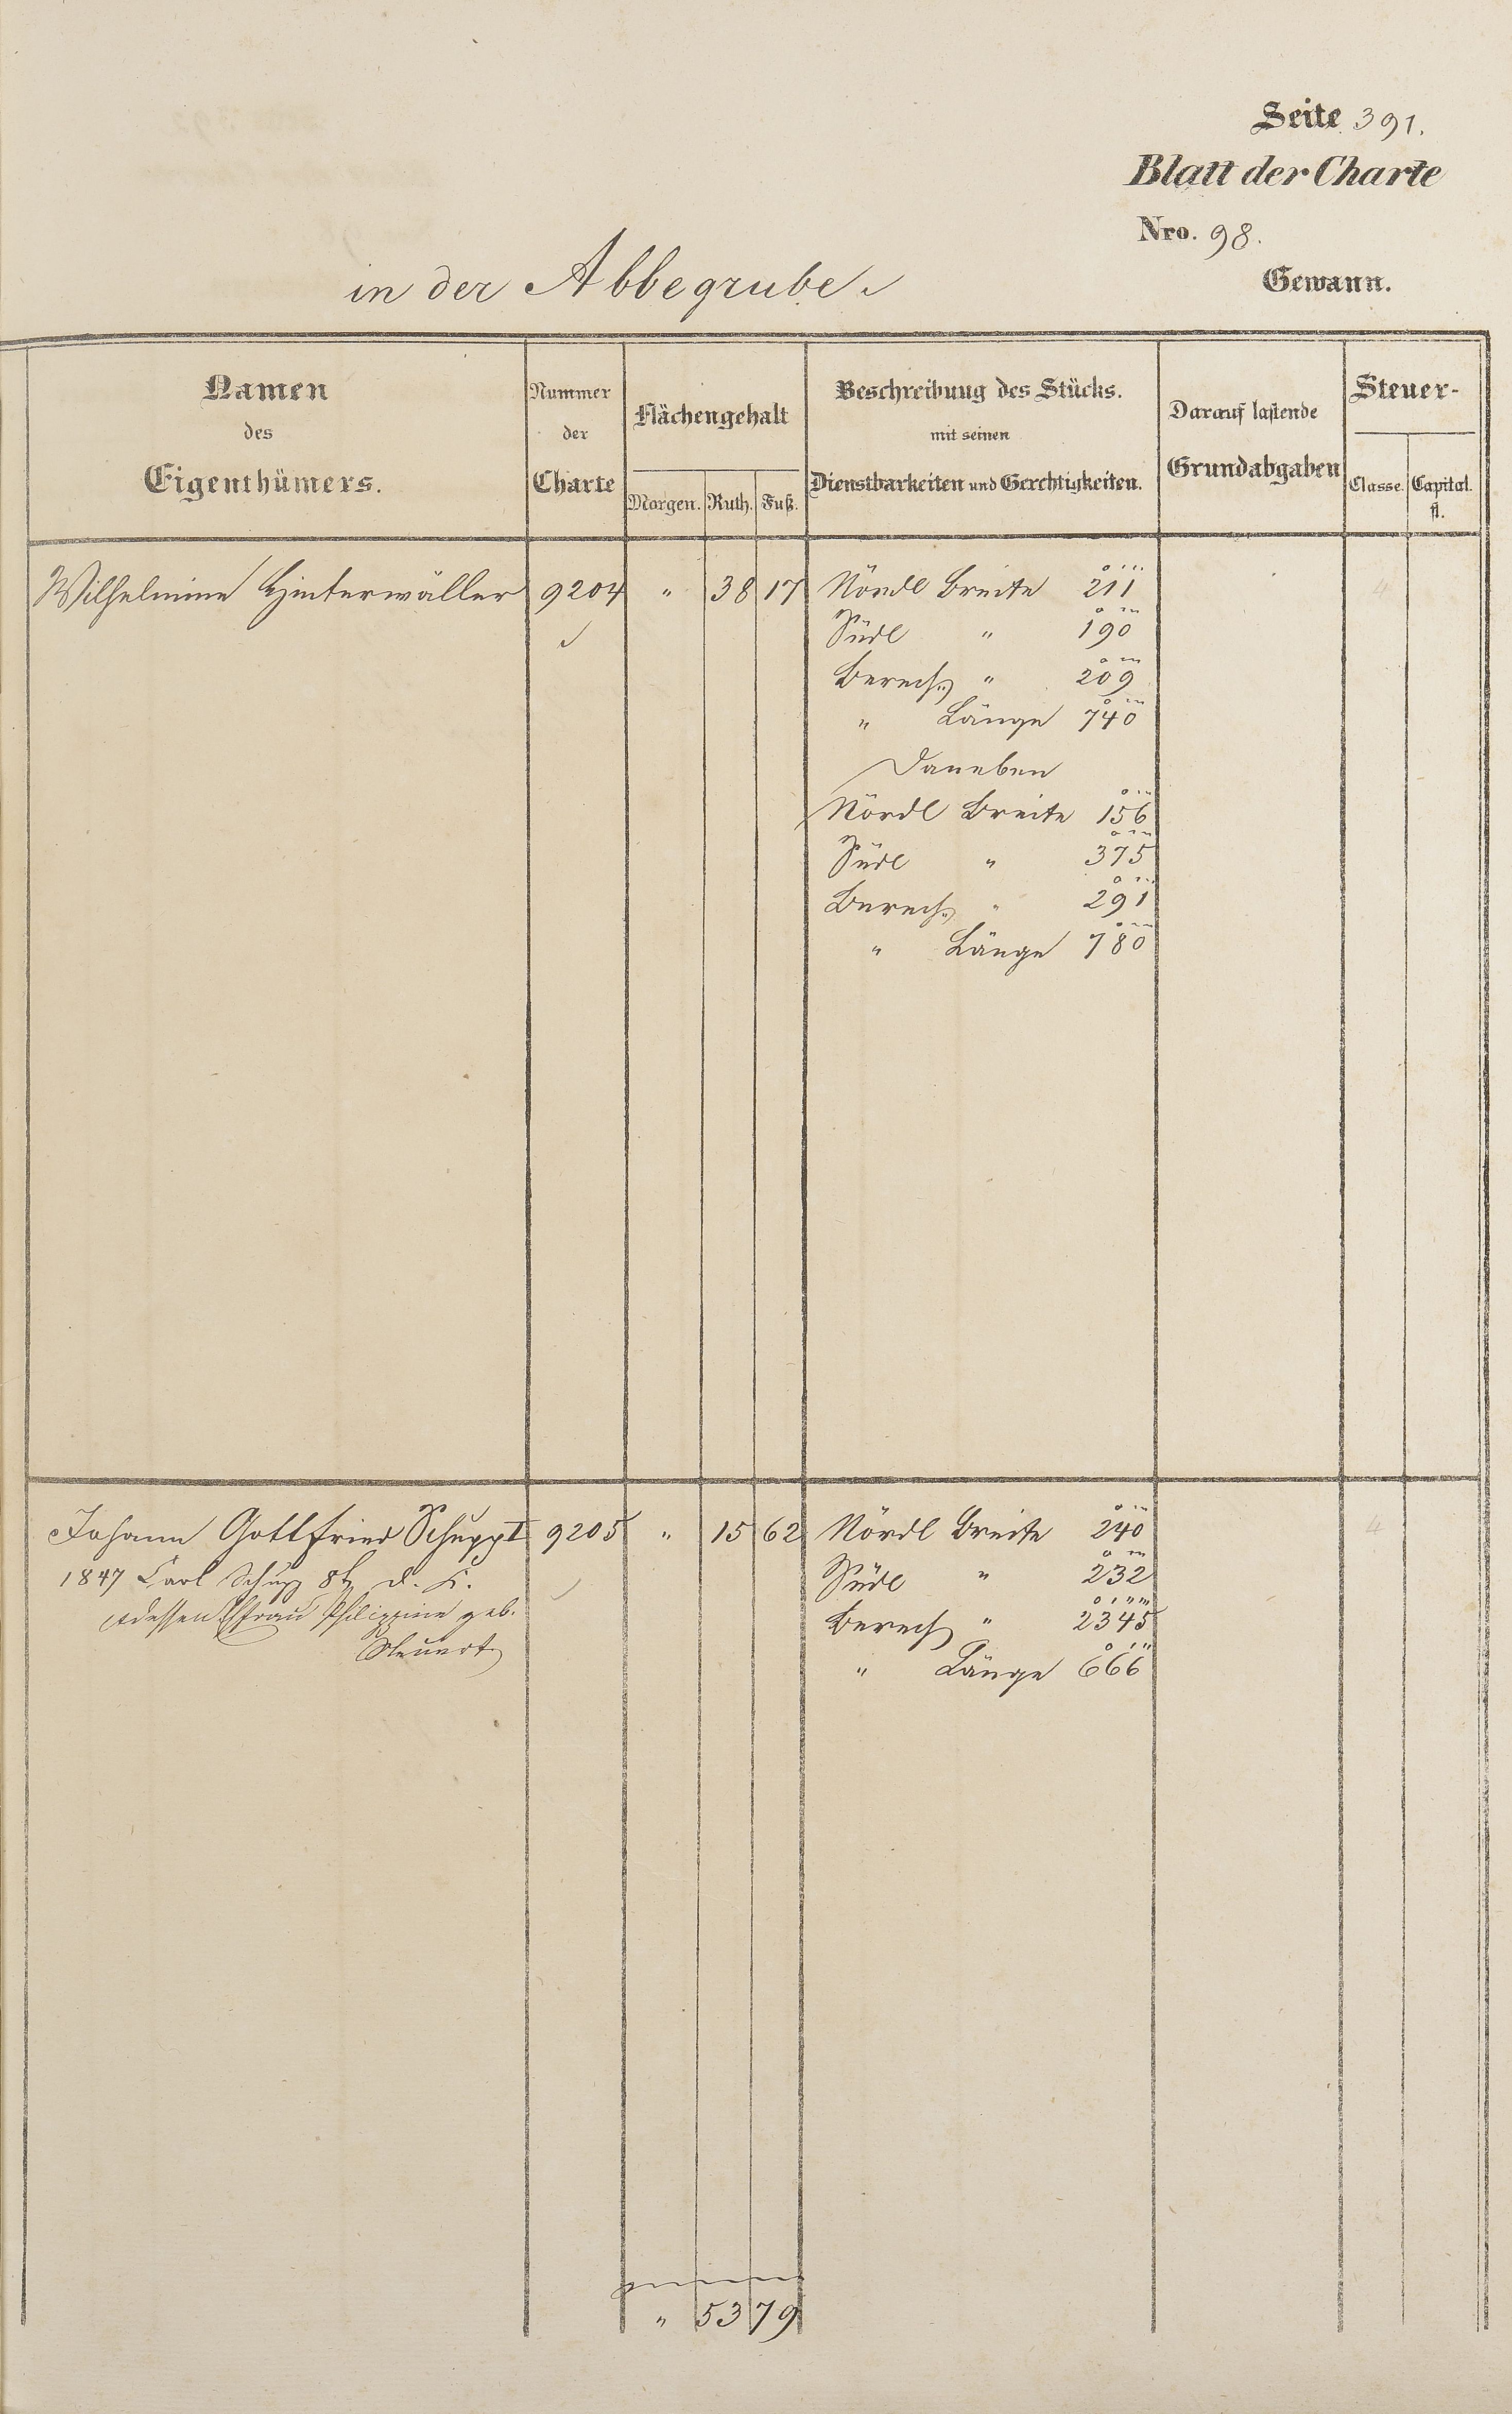 Seite 391.
Blatt der Charte
Nro. 98.
in der Abbegrube Gewann.
Namen des Eigenthümers.
Nummer der Charte
Flächengehalt
Morgen. Ruth. Fuß.
Beschreibung des Stücks.
mit seinen
Dienstbarkeiten und Gerechtigkeiten.
Darauf lastende
Grundabgaben
Steuer-
Classe. Capital.
fl.
Wilhelmine Hinterwäller 9204 " 38 17 Nördl Breite 211 4
Südl " 190
Berech. " 209
" Länge 740
Daneben
Nördl Breite 156
Südl " 375
Berech. " 291
" Länge 780
Johann Gottfried Schupp I 9205 " 15 62 Nördl Breite 240 4
1847 Carl Schupp 8t d. K. Südl " 232
dessen Ehfrau Philippine geb. Berech " 2345
Steuert " Länge 666
" 53 79